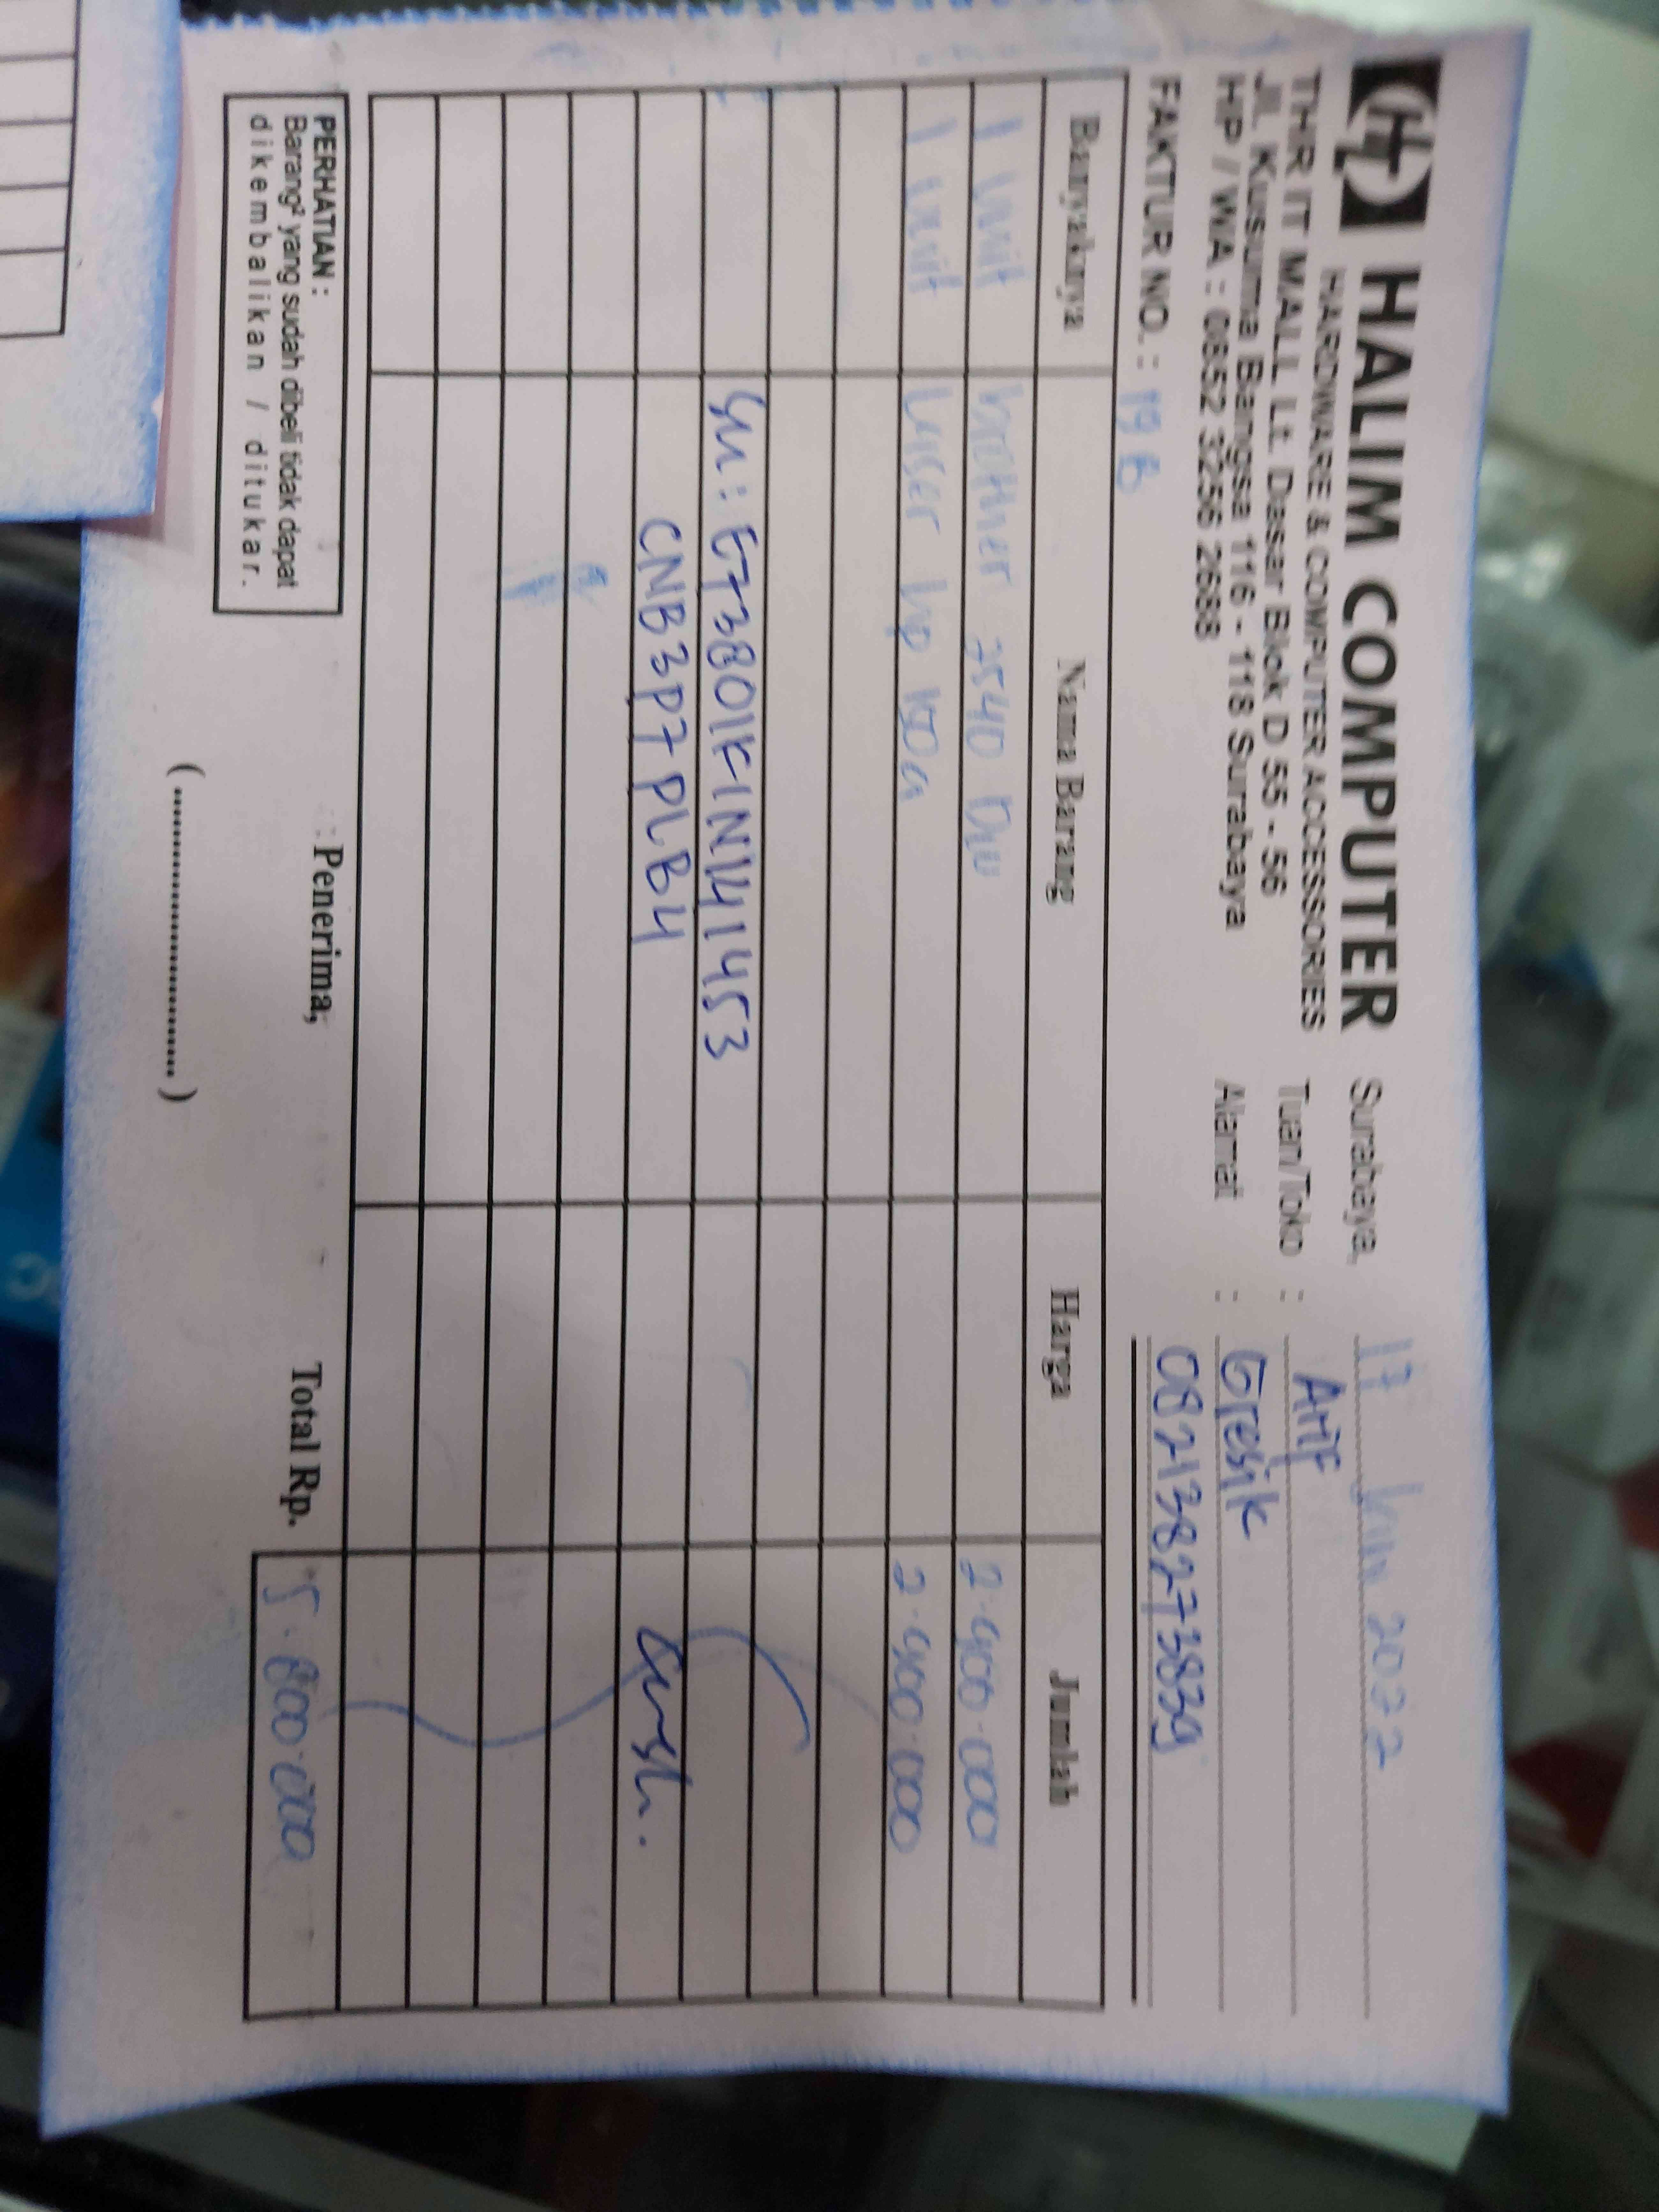 HALIM COMPUTER
HARDWARE & COMPUTER ACCESSORIES
THR IT MALL Lt. Dasar Blok D 55 - 56
Jl. Kusuma Bangsa 116 - 118 Surabaya
HP / WA : 0852 3256 2688
Surabaya, 17 2022
Tuan/Toko : Arif
Alamat : Gresik
082138273839
FAKTUR NO. : 196
Banyaknya Nama Barang Harga Jumlah
1 unit 3540 2.900.000
1 unit Laser hp 150a 2.900.000
sn :
CNB3P7PLB4 Cash.
PERHATIAN :
Barang² yang sudah dibeli tidak dapat
dikembalikan / ditukar.
Penerima,
(..............................)
Total Rp. 5.800.000